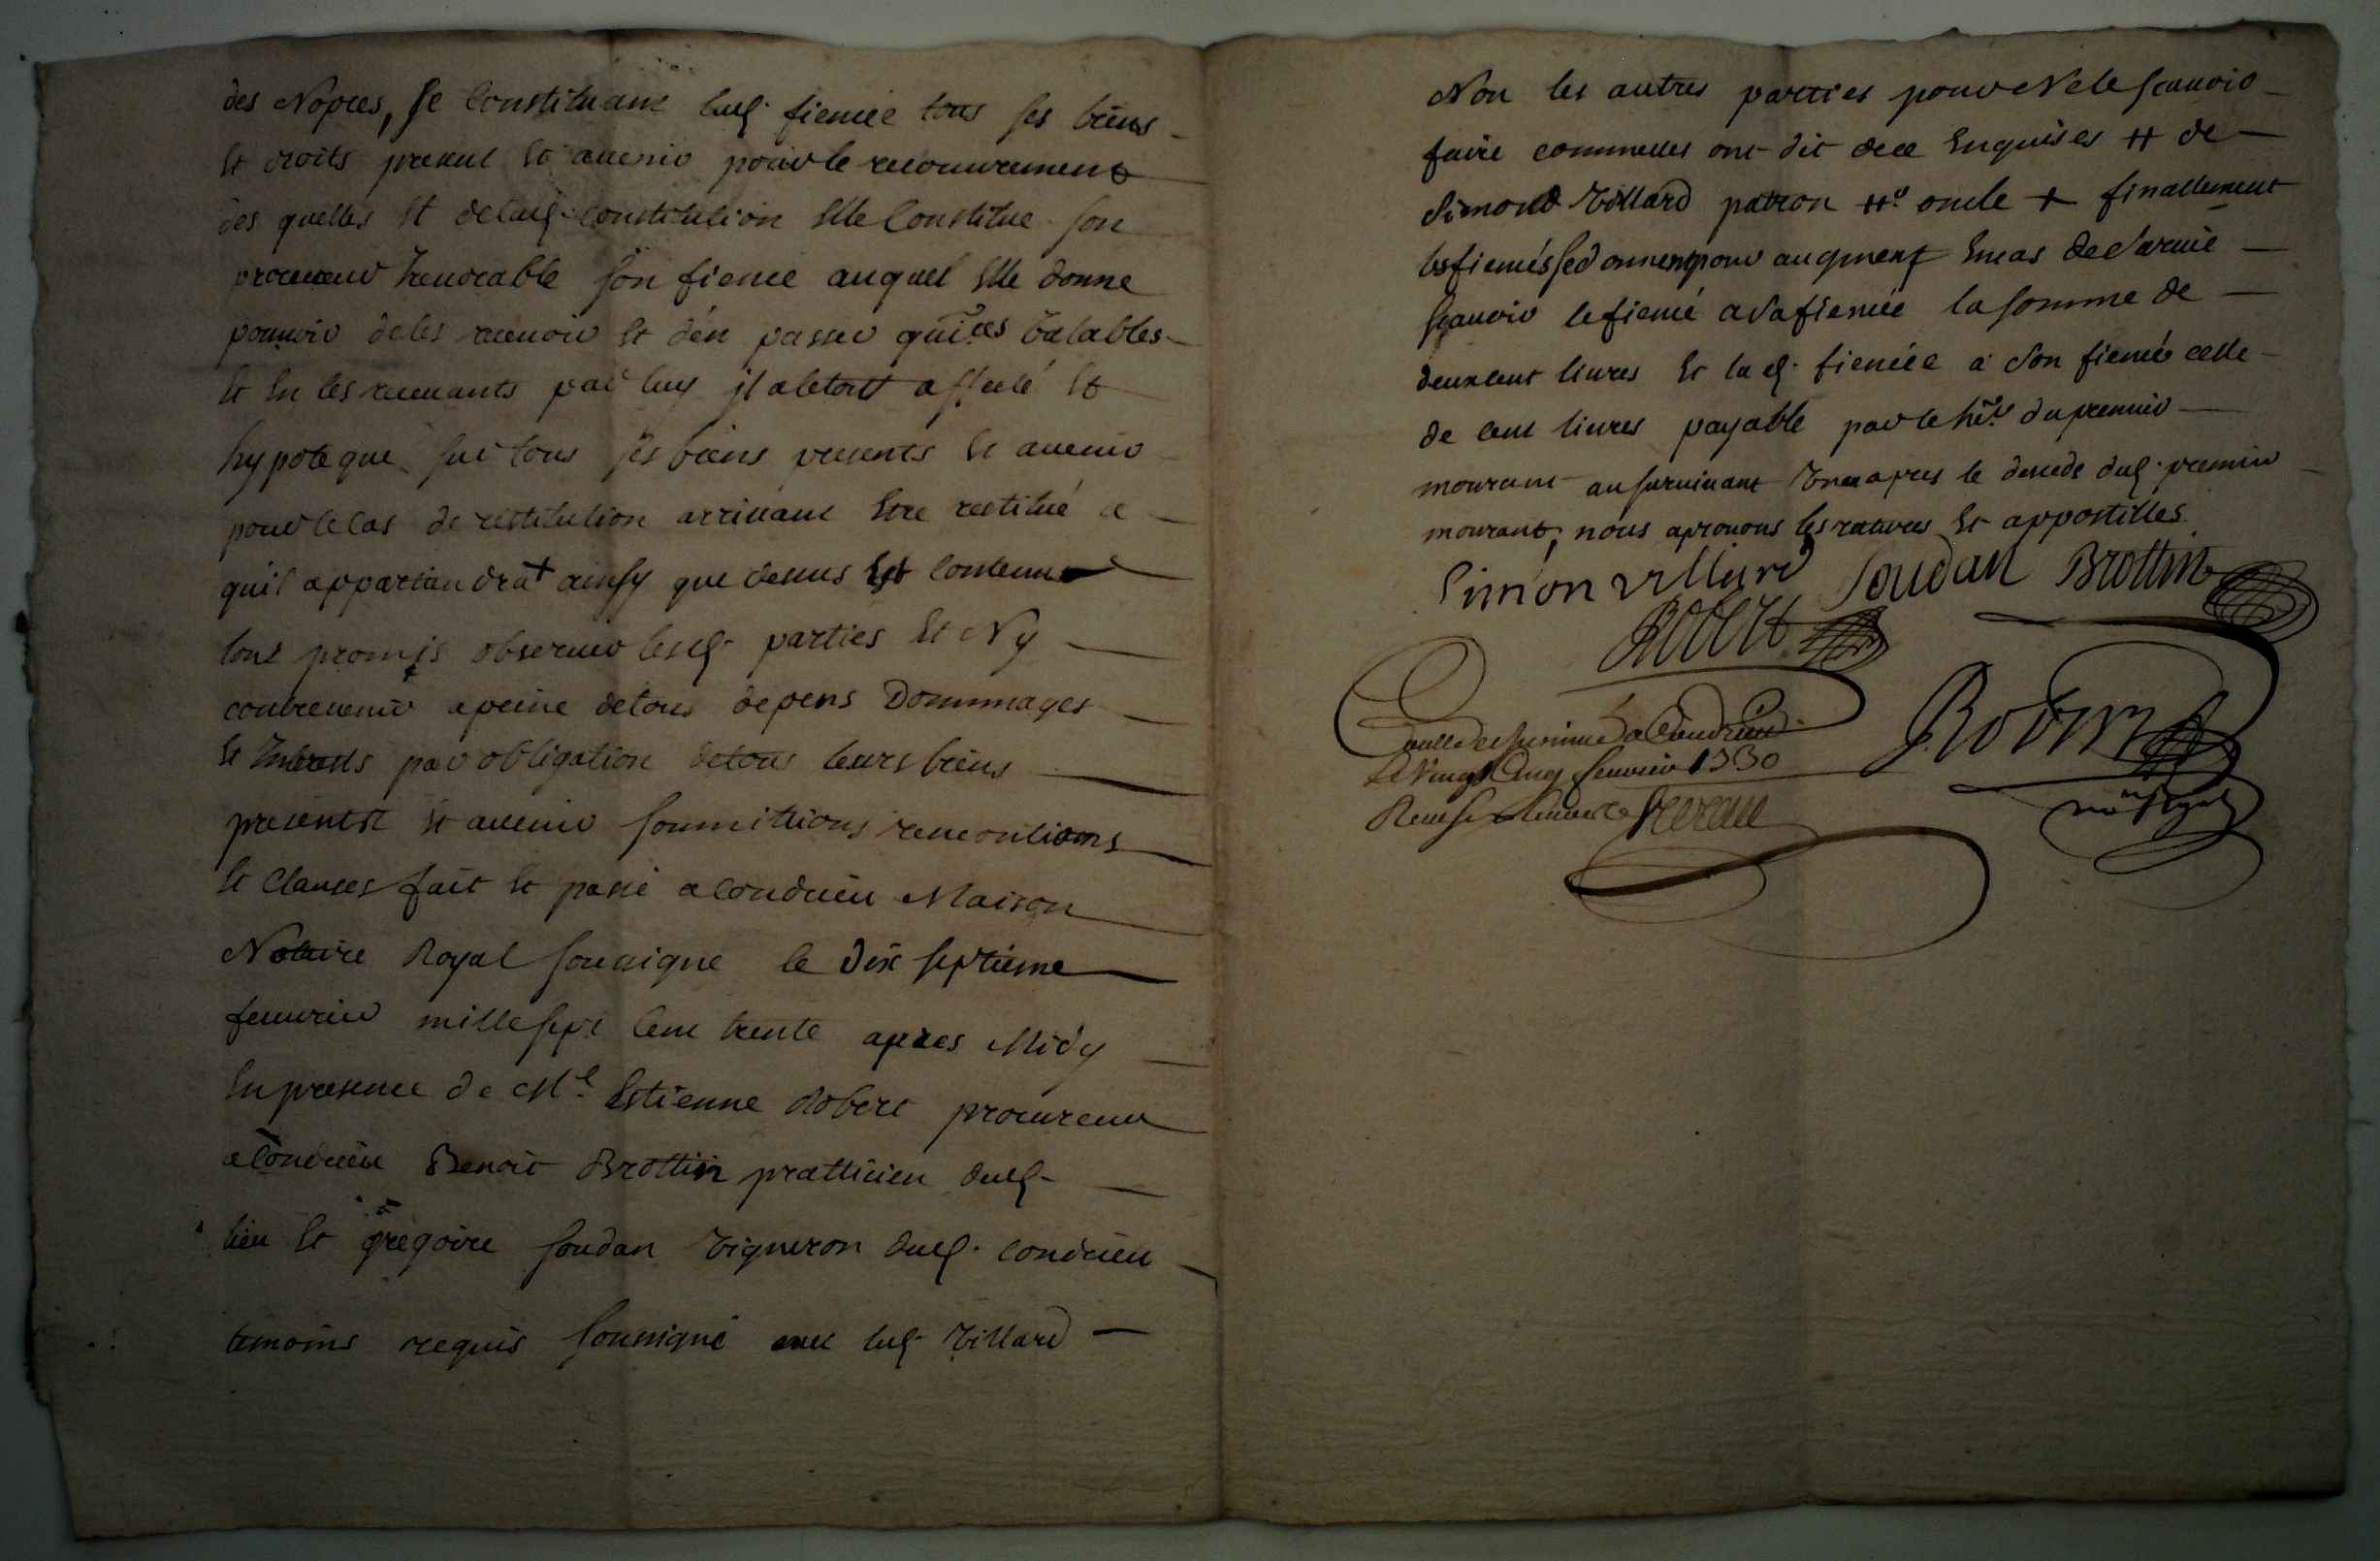 des Nopces, se Constituant lad. fiencée tous ses biens
et droits present et avenir pour le recouvrement
des quelles et delad. constitution elle Constitue son
procureur Irrevocable son fiencé auquel elle donne
pouvoir de les recevoir et d'en passer quices valables
et en les recevants par luy il a letout affecté et
hypoteque sur tous ses biens presents et avenir
pour le cas de restitution arrivant etre restitué a
quil appartiendra + ainsy que dessus est contenu
tont promis observer lesd. parties et Ny
contrevenir a peine de tous depens Dommages
et Interests par obligation detous leurs biens
presents et avenir soumittions renontiations
et Clauses fait et passé a Condrieu Maison
Notaire Royal sousigné le dix septieme
fevvrier mille sept cent trente apres Midy
En presence de Me. Estienne Robert procureur
a Condrieu Benoit Brottin pratticien dud.
lieu et gregoire Soudan Vigneron dud. Condrieu
temoins requis soussigné avec led. Villard
Non les autres parties pour Ne le scavoir
faire commelles ont dit dece Enquises # de
Simond Villard patron # oncle + finallement
les fiencés se donnent pour augment en cas de survie
scavoir le fiencé a sa fiencée la somme de
deux cent livres et lad. fiencée a son fiencé celle
de cent livres payable par le her. du premier
mourant au survivant un an apres le deceds dud. premier
mourant, nous aprouvons les ratures et appostilles
Simon Villard Soudan Brottin
Robert
Controllé et Insinué a Condrieu
Le Vingt Cinq fevvrier 1730
Robin
nore. Royal